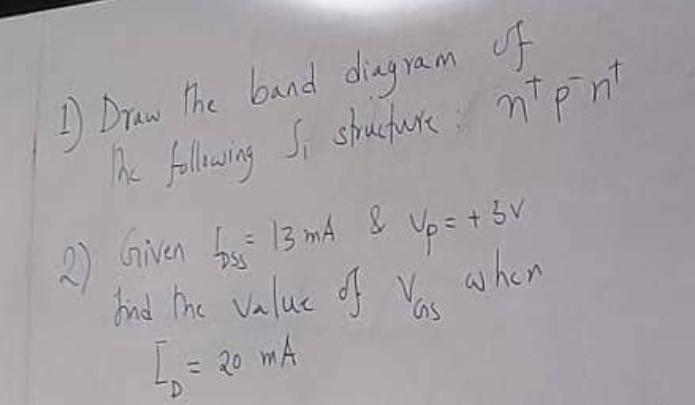 1) Draw the band diagram of
the following Si structure: n⁺ p⁻ n⁺
2) Given I_DSS = 13 mA & Vp = + 3V
find the value of V_GS when
I_D = 20 mA